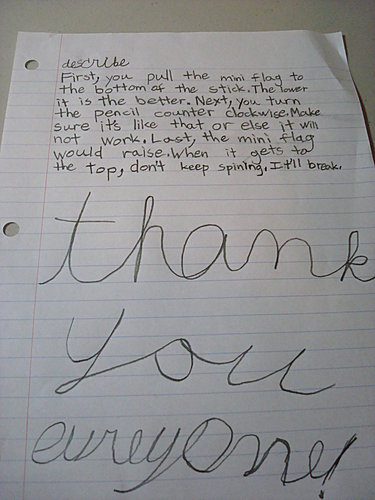 describe
First, you pull the mini flag to
the bottom of the stick. The lower
it is the better. Next, you turn
the pencil counter clockwise. Make
sure it's like that or else it will
not work. Last, the mini flag
would raise. When it gets to
the top, don't keep spining. It'll break.
thank
you
evreyone!